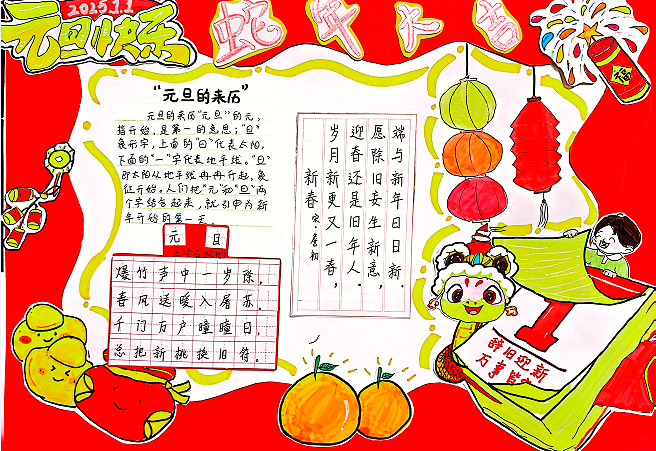 2025.1.1
元旦快乐
蛇年大吉
"元旦的来历"
元旦的来历"元旦"的元,
指开始,是第一的意思;"旦"
象形字,上面的"日"代表太阳,
下面的"一"字代表地平线。"旦"
即太阳从地平线冉冉升起,象
征开始。人们把"元"和"旦"两
个字结合起来,就引申为新
年开始的第一天
元 旦
爆竹声中一岁除,
春风送暖入屠苏.
千门万户曈曈日,
总把新桃换旧符.
新春
宋·詹初
岁月新更又一春,
迎春还是旧年人.
愿除旧安生新意,
端与新年日日新.
1
辞旧迎新
万事皆